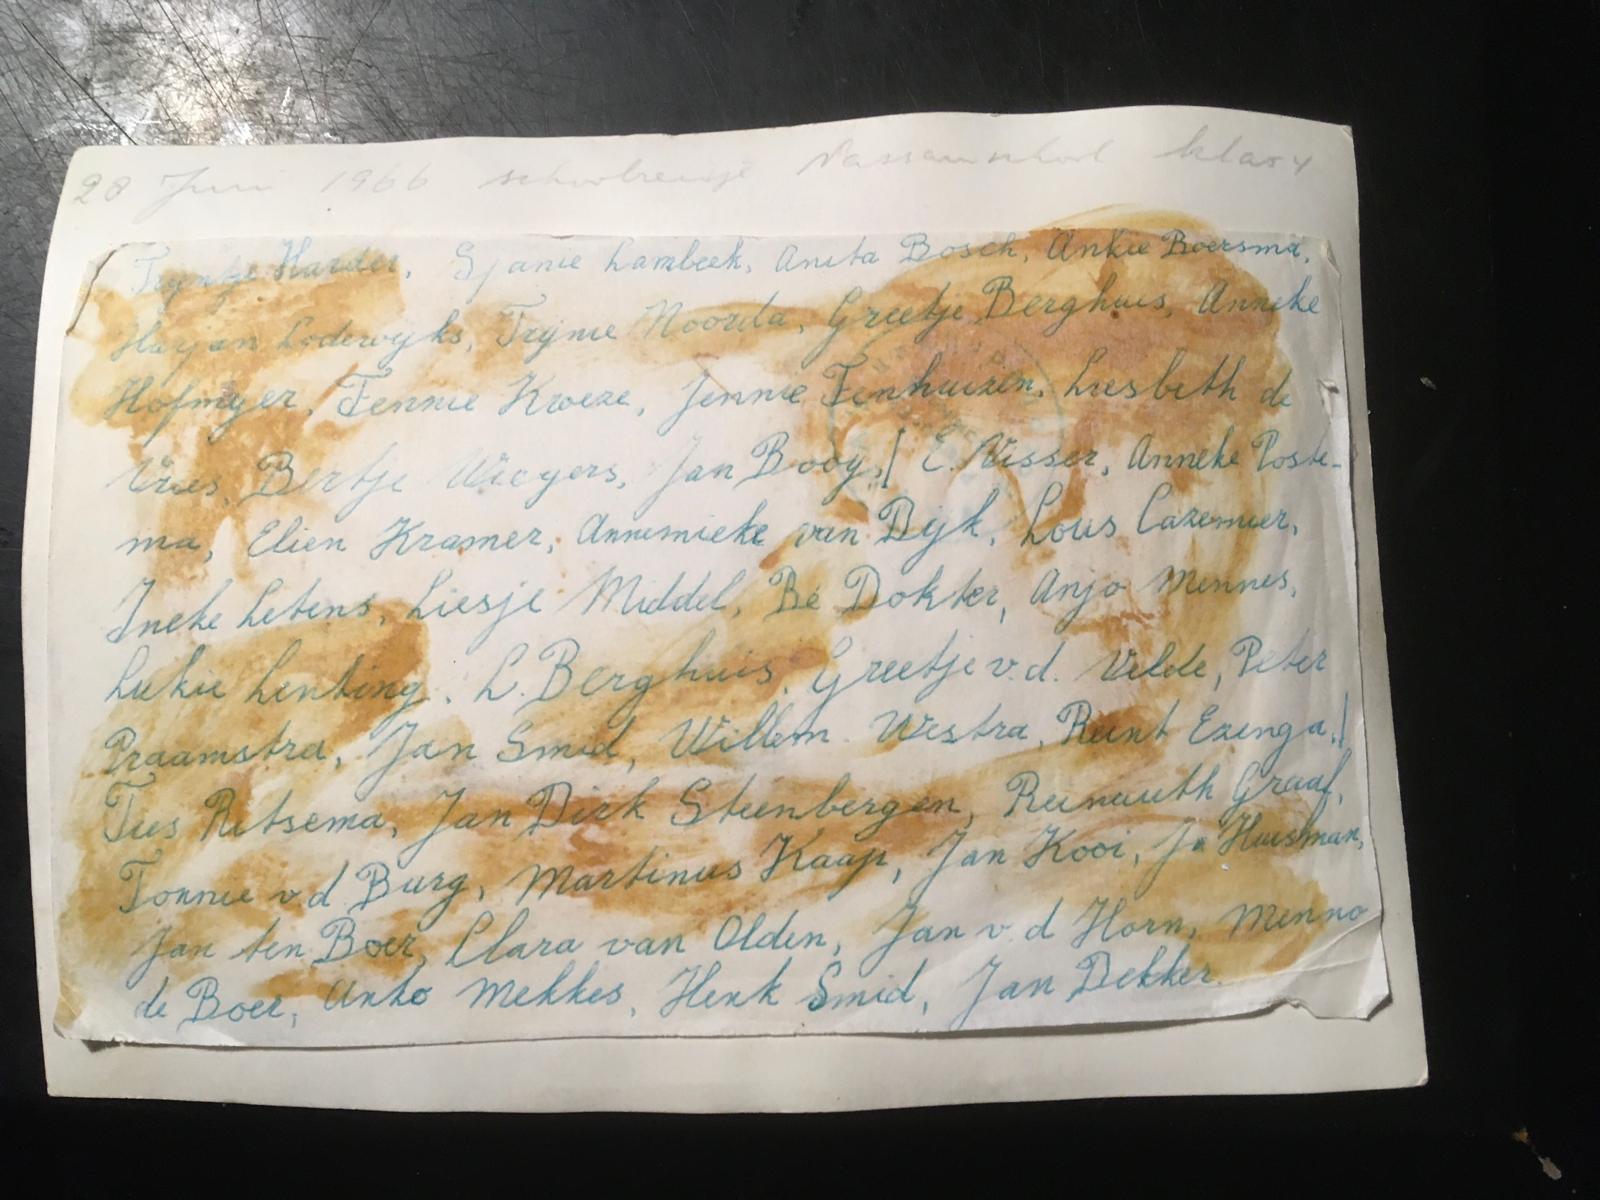 28 Juni 1966 schoolreisje Nassauschool klas
Tryntje Harder, Sjanie Lambeek, Anita Bosch, Ankie Boersma,
Harjan Lodewyks, Trynie Noorda, Greetje Berghuis, Anneke
Hofmeyer, Fennie Kroeze, Jennie Tenhuizen, Liesbeth de
Vries, Bertje Wiegers, Jan Booy,/ E. Visser, Anneke Poste-
ma, Elien Kramer, Annemieke van Dijk, Lous Cazemier,
Ineke Letens, Liesje Middel, Bé Dokter, Anjo Mennes,
Lukie Lenting, L. Berghuis, Greetje v.d. Velde, Peter
Praamstra, Jan Smid, Willem Westra, Reint Ezinga,/
Ties Ritsema, Jan Dirk Steenbergen, Graaf,
Tonnie v d Burg, Martinus Kaap, Jan Kooi, Huisman,
Jan ten Boer, Clara van Olden, Jan v. d Horn, Menno
de Boer, Anko Mekkes, Henk Smid, Jan Dekker.